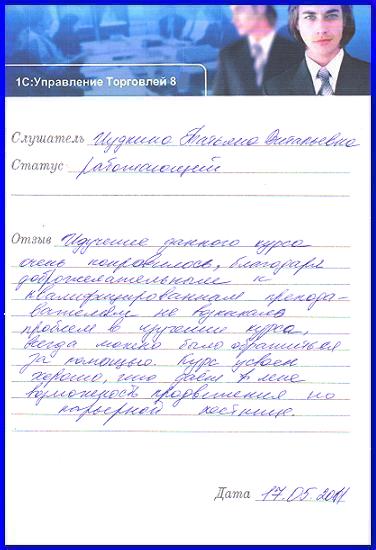 1С:Управление Торговлей 8
Слушатель Чудкина Татьяна Витальевна
Статус работающий
Отзыв Изучение данного курса
очень понравилось, благодаря
доброжелательным и
квалифицированным препода-
вателям не возникало
проблем в изучение курса,
всегда можно было обратиться
за помощью. Курс усвоен
хорошо, что даёт в мне
возможность продвижения по
карьерной лестнице.
Дата 17.05.2011